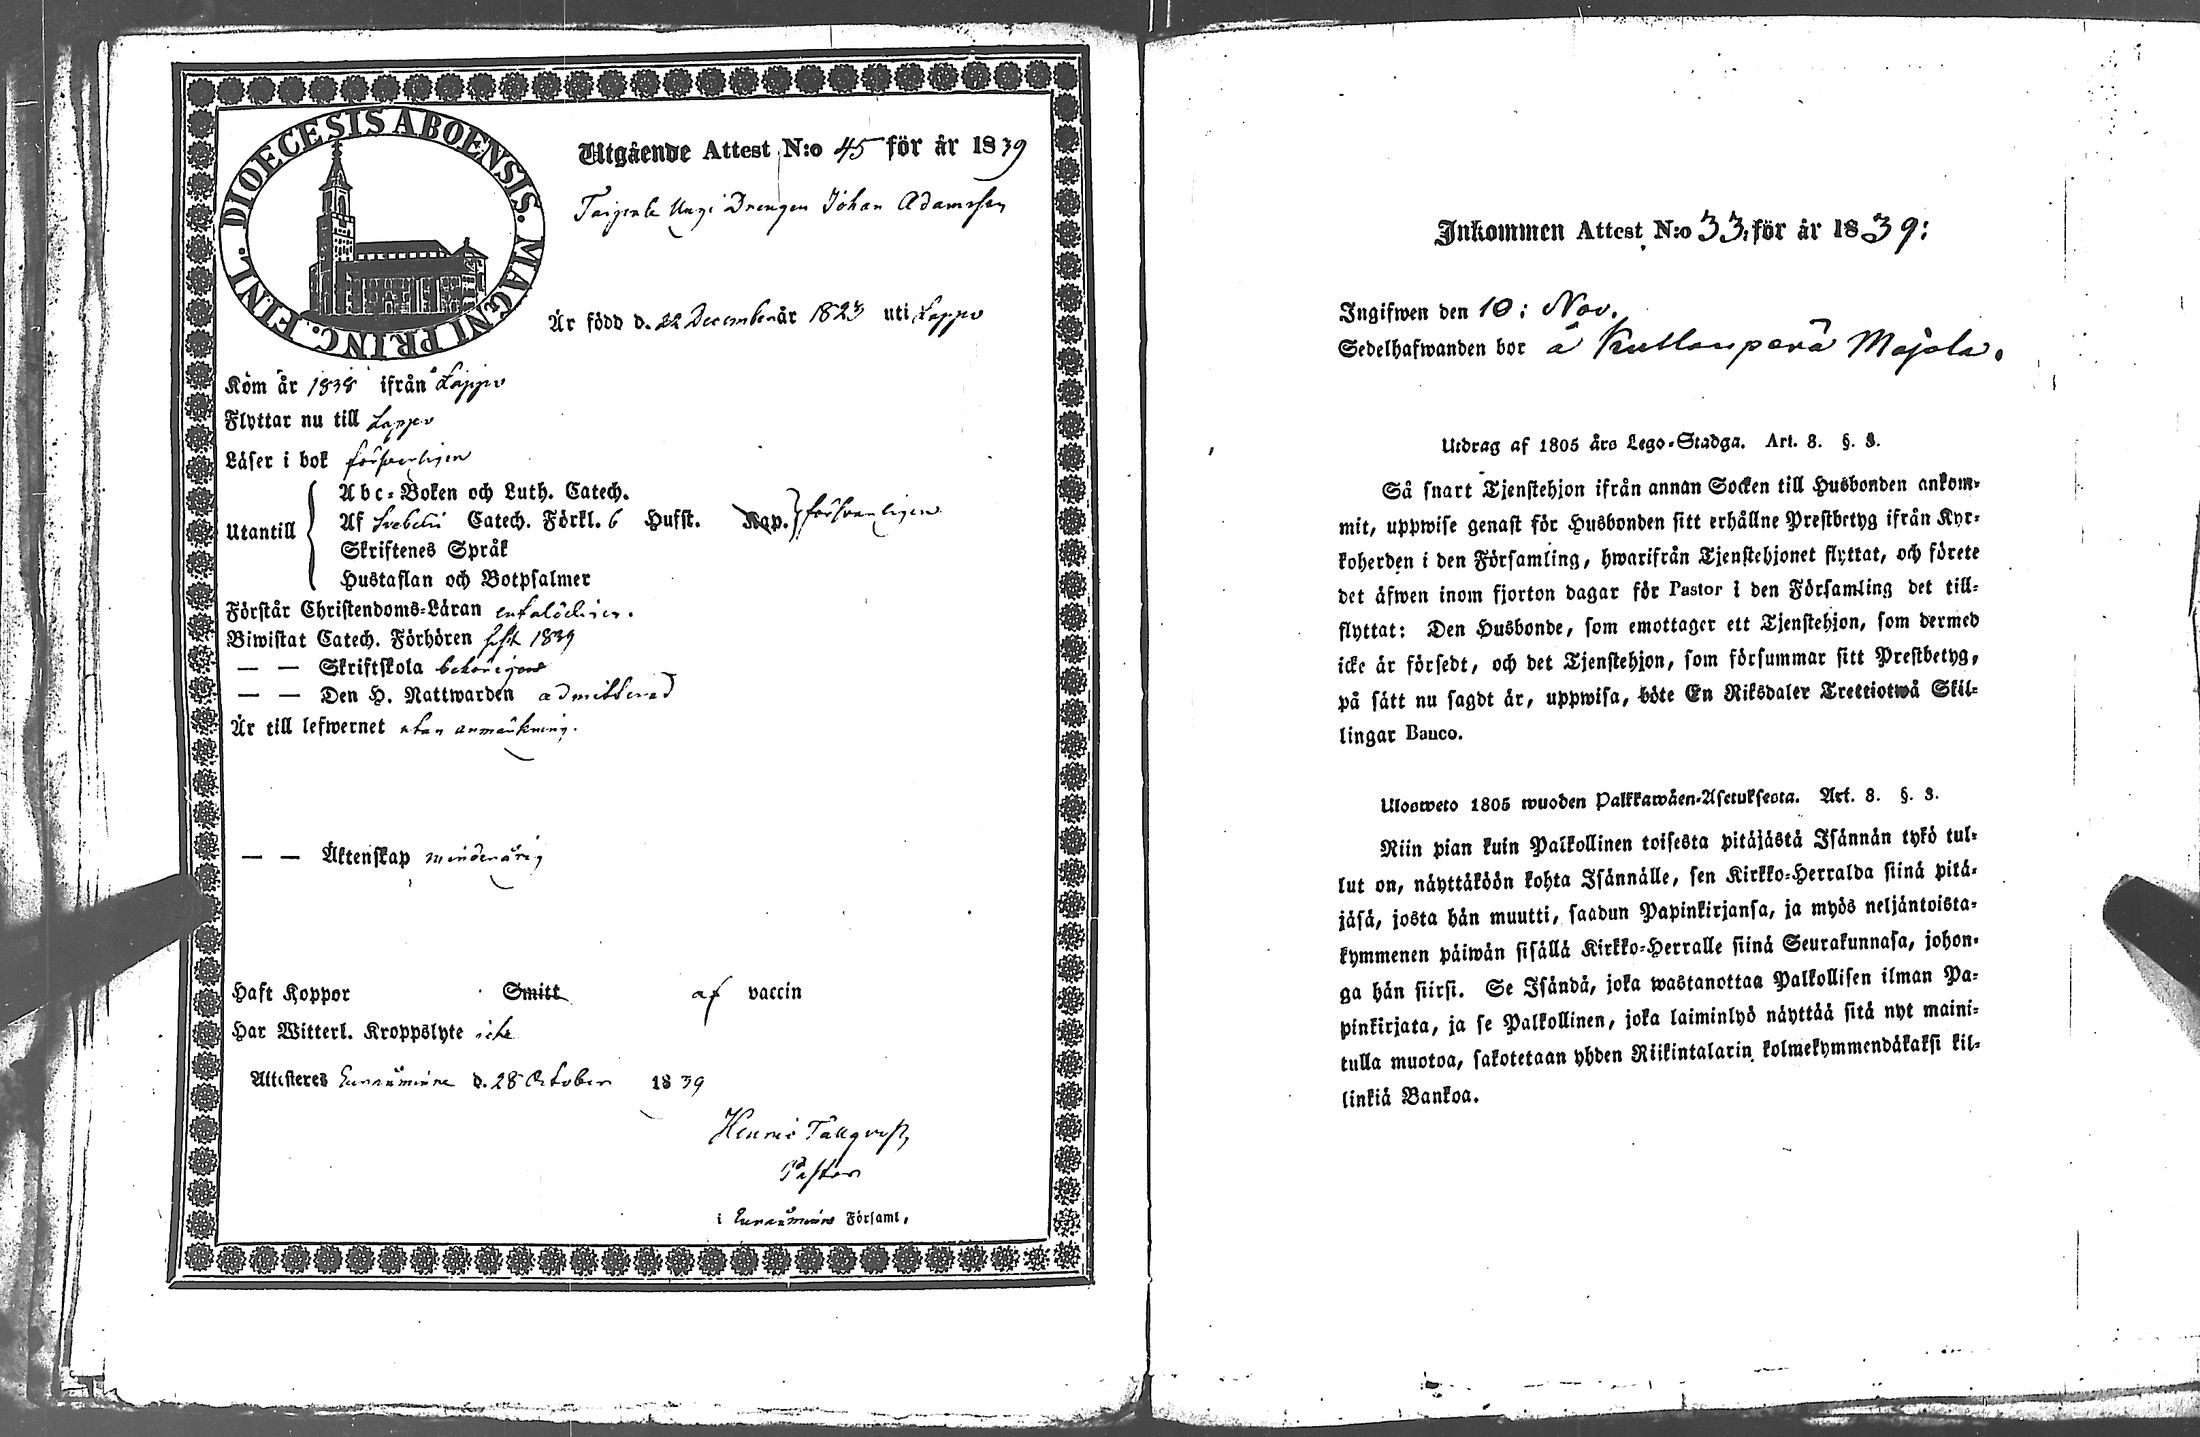 DIOECESIS ABOENSIS. MAGNI PRINC. FINL.
Utgående Attest N:o 45 för år 1839
Drengen Johan Adamsson
Är född d. 22 December år 1823 uti Lappo
Kom år 1838 ifrån Lappo
Flyttar nu till Lappo
Läser i bok försvarligen
Utantill
Abc-Boken och Luth. Catech.
Af Svebelii Catech. Förkl. 6 Hufst. Kap. försvarligen
Skriftenes Språk
Hustaflan och Botpsalmer
Förstår Christendoms-Läran enfaldeligen.
Biwistat Catech. Förhören sist 1839
— — Skriftskola behörigen
— — Den H. Nattwarden admitterad
Är till lefwernet utan anmärkning.
— — Äktenskap minderårig
Haft Koppor Smitt af vaccin
Har Witterl. Kroppslyte icke
Attesteres Euraåminne d. 28 October 1839
Henric Tallqvist,
Pastor
i Euraåminne Församl.
Inkommen Attest N:o 33: för år 1839:
Ingifwen den 10: Nov.
Sedelhafwanden bor å Kullanperä Majala.
Utdrag af 1805 års Lego-Stadga. Art. 8. §. 8.
Så snart Tjenstehjon ifrån annan Socken till Husbonden ankom-
mit, uppwise genast för Husbonden sitt erhållne Prestbetyg ifrån Kyr-
koherden i den Församling, hwarifrån Tjenstehjonet flyttat, och förete
det äfwen inom fjorton dagar för Pastor i den Församling det till-
flyttat: Den Husbonde, som emottager ett Tjenstehjon, som dermed
icke är försedt, och det Tjenstehjon, som försummar sitt Prestbetyg,
på sätt nu sagdt är, uppwisa, böte En Riksdaler Trettiotwå Skil-
lingar Banco.
Ulosweto 1805 wuoden Palkkawäen-Asetuksesta. Art. 8. §. 8.
Niin pian kuin Palkollinen toisesta pitäjästä Isännän tykö tul-
lut on, näyttäköön kohta Isännälle, sen Kirkko-Herralda siinä pitä-
jäsä, josta hän muutti, saadun Papinkirjansa, ja myös neljäntoista-
kymmenen päiwän sisällä Kirkko-Herralle siinä Seurakunnasa, johon-
ga hän siirsi. Se Isändä, joka wastanottaa Palkollisen ilman Pa-
pinkirjata, ja se Palkollinen, joka laiminlyö näyttää sitä nyt maini-
tulla muotoa, sakotetaan yhden Riikintalarin kolmekymmendäkaksi kil-
linkiä Bankoa.